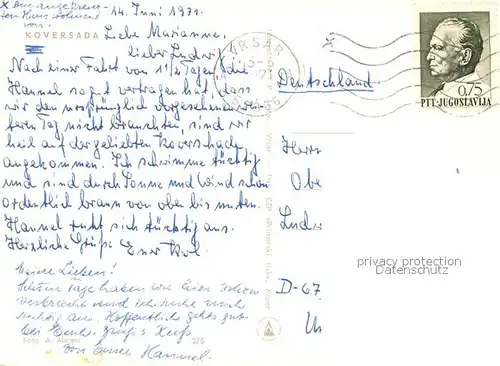 x Am angekreuz-
ten Haus wohnen
wir.
14. Juni 1971.
KOVERSADA
Liebe Marianne,
lieber Ludwig!
Nach einer Fahrt von 1 1/2 Tagen, die
Hannel so gut vertragen hat, dass
wir den ursprünglich vorgesehenen wei-
teren Tag nicht brauchten, sind wir
heil auf der geliebten Koversada
angekommen. Ich schwimme tüchtig
und sind durch Sonne und Wind schon
ordentlich braun von oben bis unten.
Hannel ruht sich tüchtig aus.
Herzliche Grüße Euer
Meine Lieben!
Schöne Tage haben wir hier schon
verbracht und ich ruhe mich
richtig aus. Hoffentlich geht's gut
bei Euch. Gruß + Kuß
von Eurer Hannel.
Foto A. 
275
VRSAR
Deutschland
0,75
PTT-JUGOSLAVIJA
Herrn
Obe
Ludw
D-67
privacy protection
Datenschutz